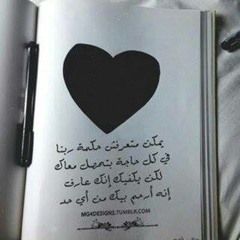 يمكن متعرفش حكمة ربنا
في كل حاجة بتحصل معاك
لكن يكفيك إنك عارف
إنه أرحم بيك من أي حد
MG4DESIGNS.TUMBLR.COM